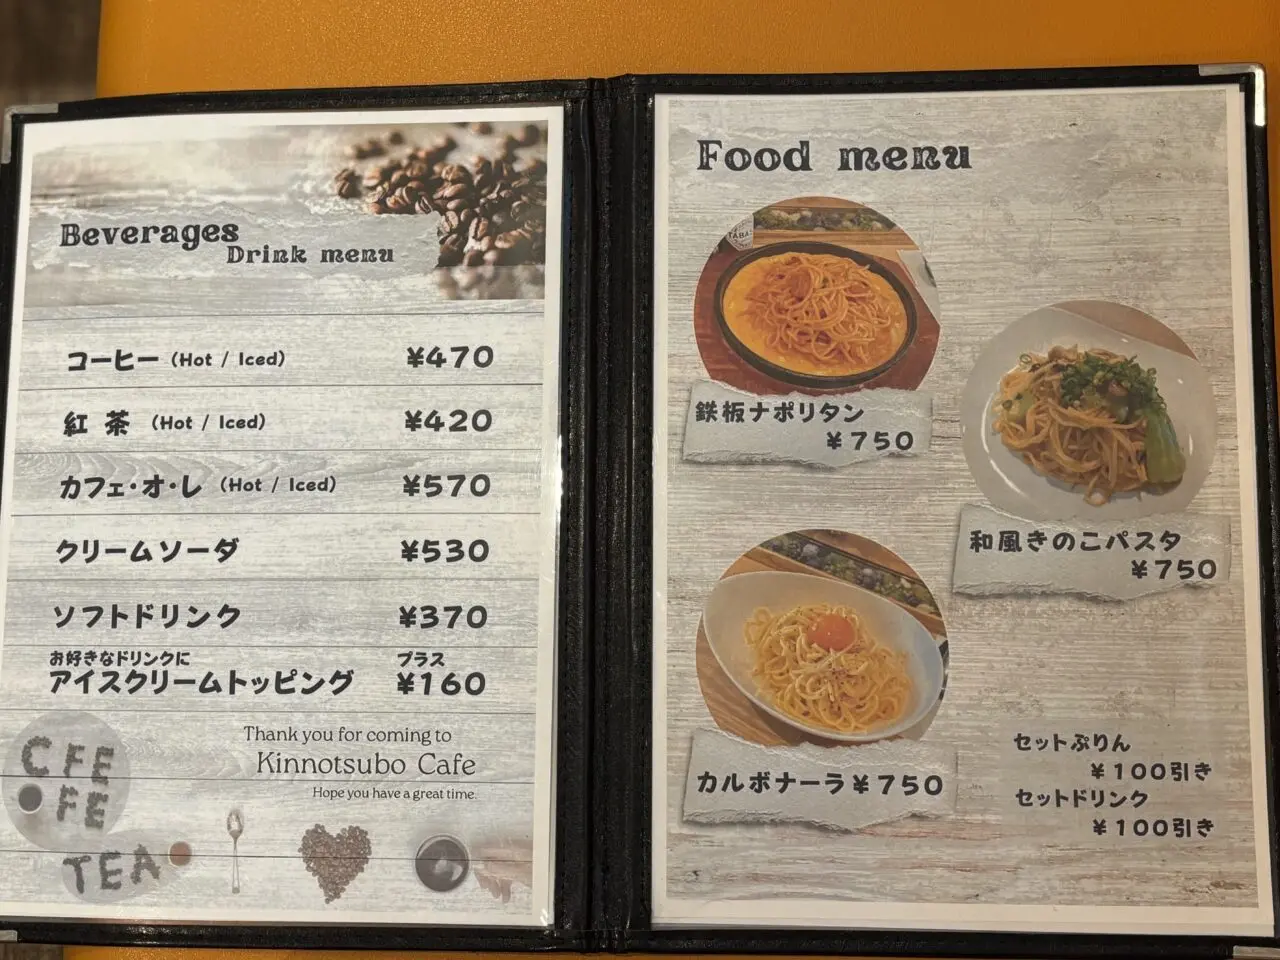 Beverages
Drink menu
コーヒー (Hot / Iced) ¥470
紅茶 (Hot / Iced) ¥420
カフェ・オ・レ (Hot / Iced) ¥570
クリームソーダ ¥530
ソフトドリンク ¥370
お好きなドリンクに プラス
アイスクリームトッピング ¥160
Thank you for coming to
Kinnotsubo Cafe
Hope you have a great time.
C FE
FE
TEA
Food menu
TABA
鉄板ナポリタン
¥750
和風きのこパスタ
¥750
カルボナーラ¥750
セットぷりん
¥100引き
セットドリンク
¥100引き